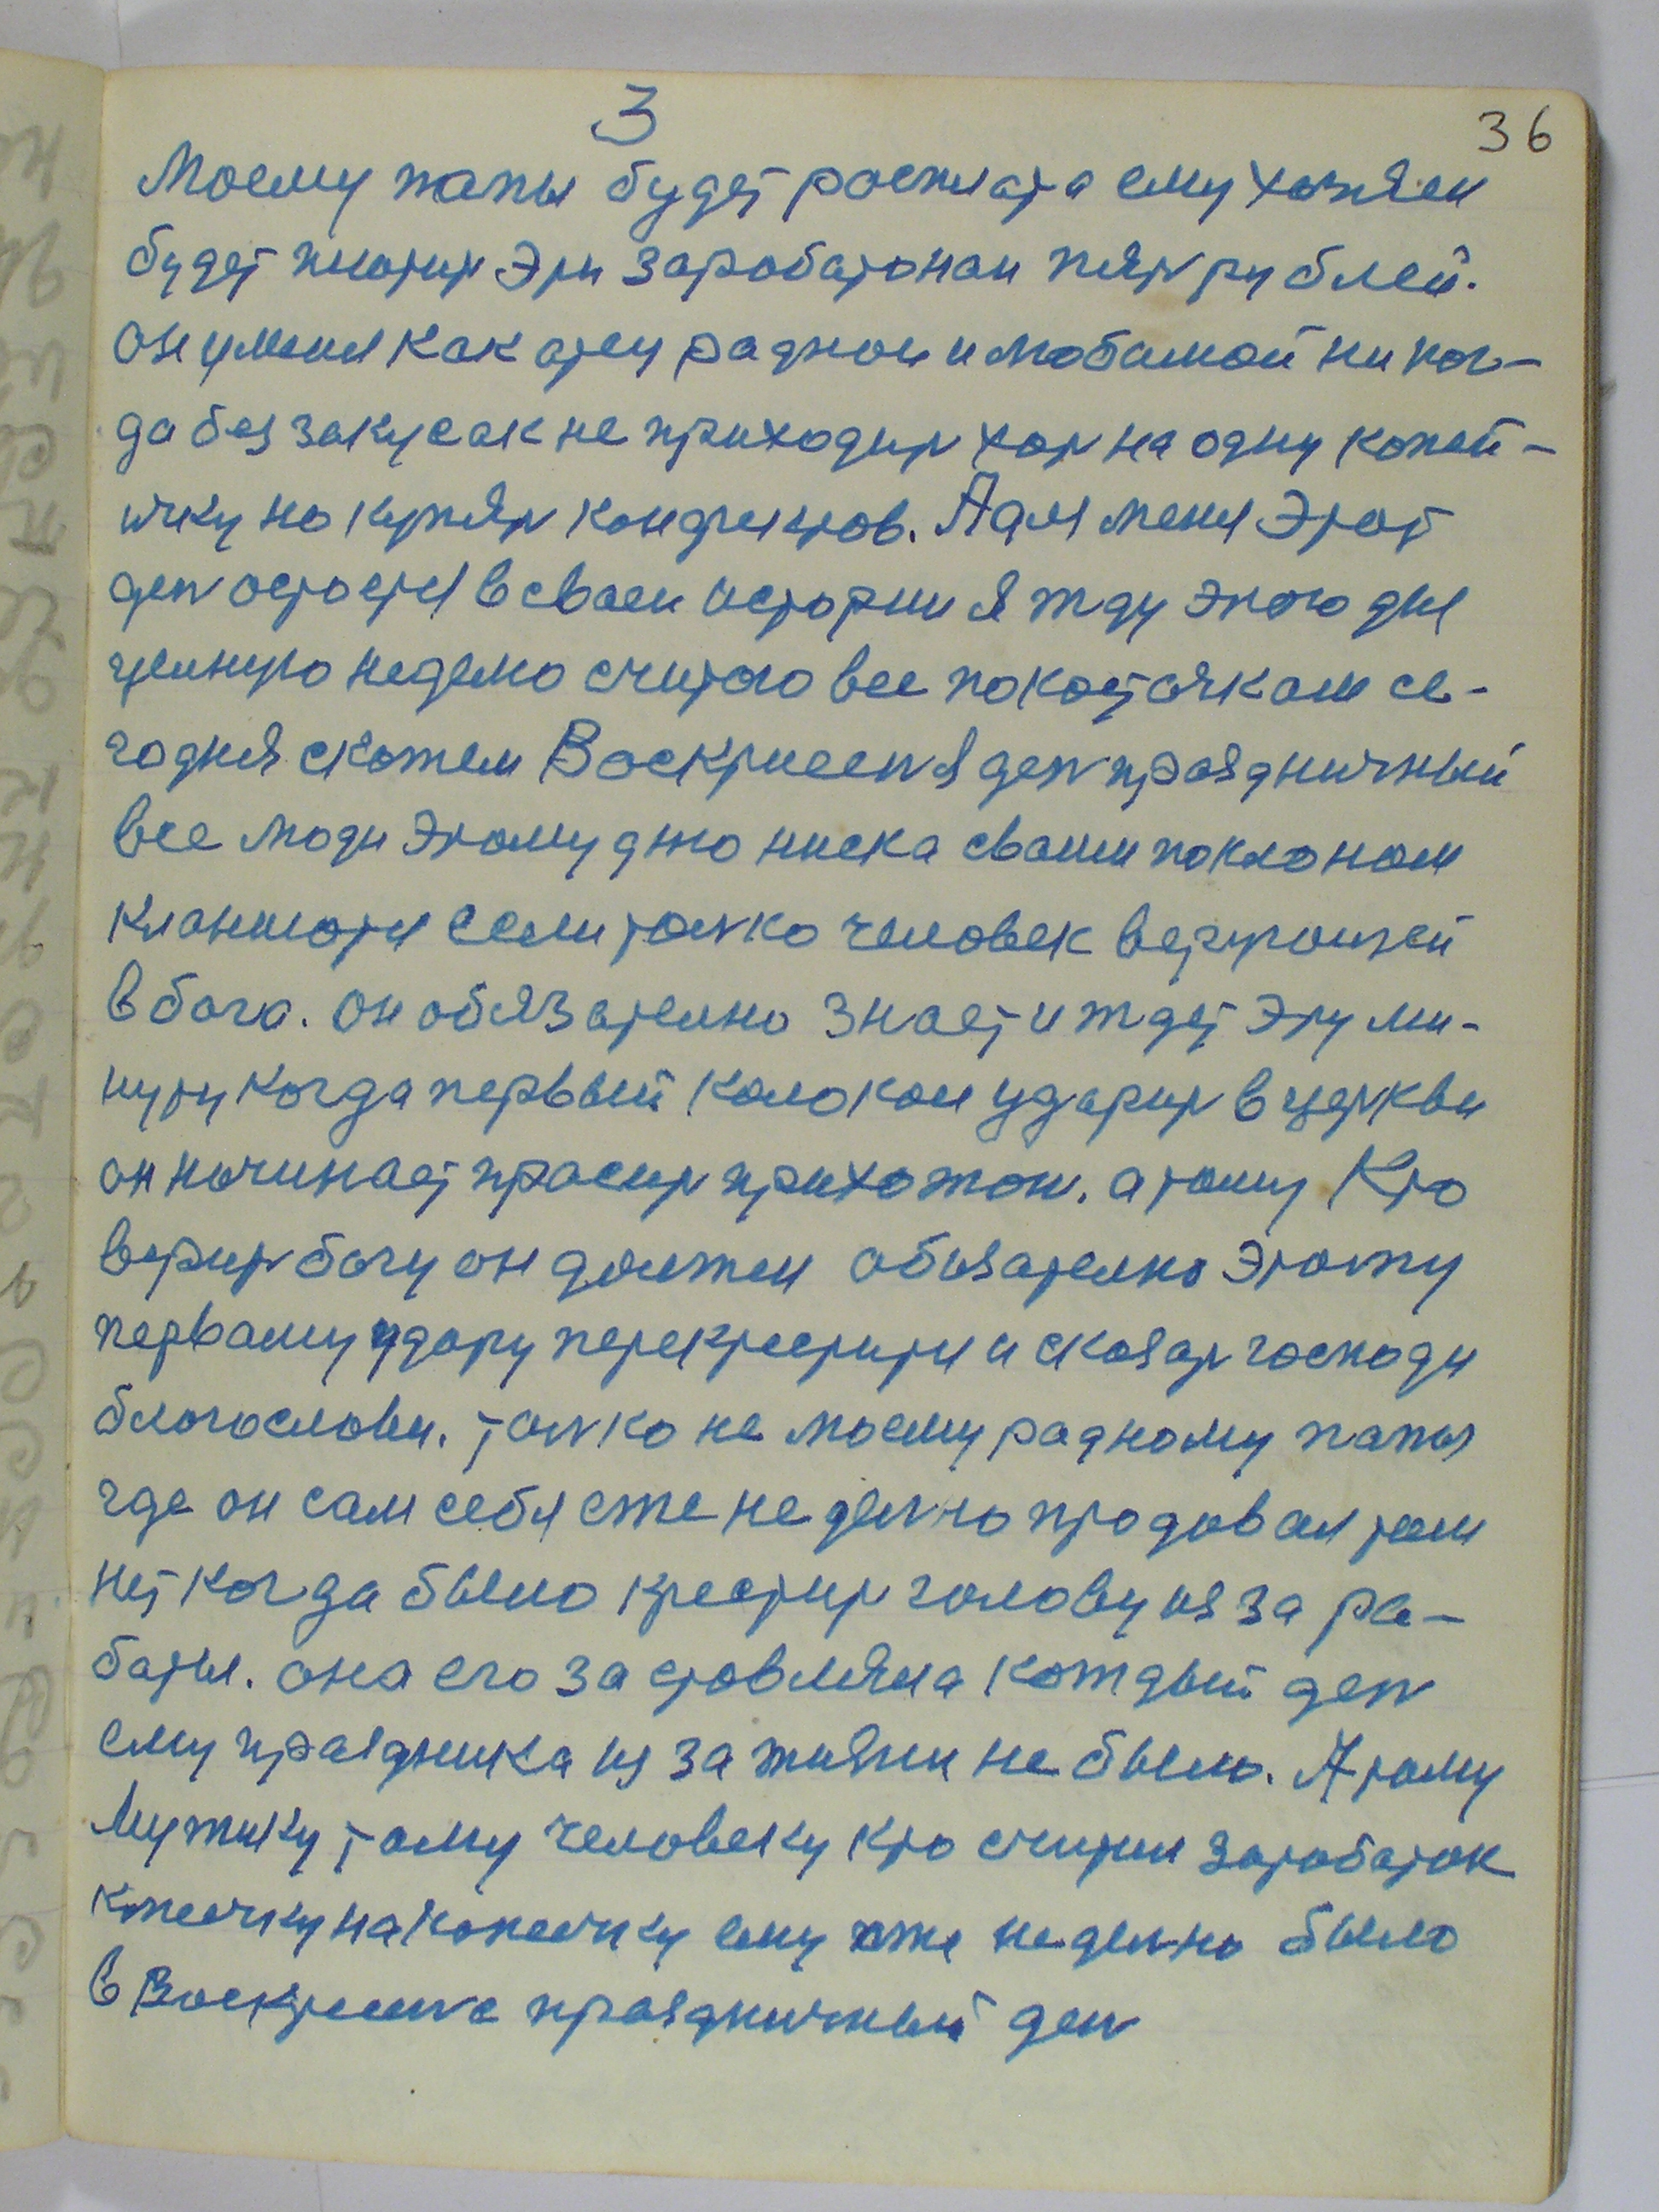 3
36
Моему папы будет росплата ему хозяен
будет плотит эти заработонаи пят рублей.
он у меня как отец раднои и любамой ни ког-
да без закусак не приходит хот на одну копей-
ичку но купят конфектов. А для меня этот
ден остоется в сваеи истории я жду этого дня
целную неделю считою все по костячкам се-
годня скожем Воскрисеня ден праздничный
все люди этому дню ниска сваим поклоном
кланиются если толко человек верующей
в бога. он обязателно знает и ждет эту ми-
нуту когда первый колокол ударит в церкви
он начинает просит прихожон. а тому Кто
верит богу он должен обязателно этому
первому удару перекреститя и сказат господи
благослови. толко не моему радному папы
где он сам себя еже неделно продовал там
нет когда было крестит голову из за ра-
баты. она его заставляла кождый ден
ему праздника из за жизни не было. А тому
Мужику тому человеку кто считал заработок
копеичку на копеичку ему еже неделно было
в Воскрисене праздничный ден